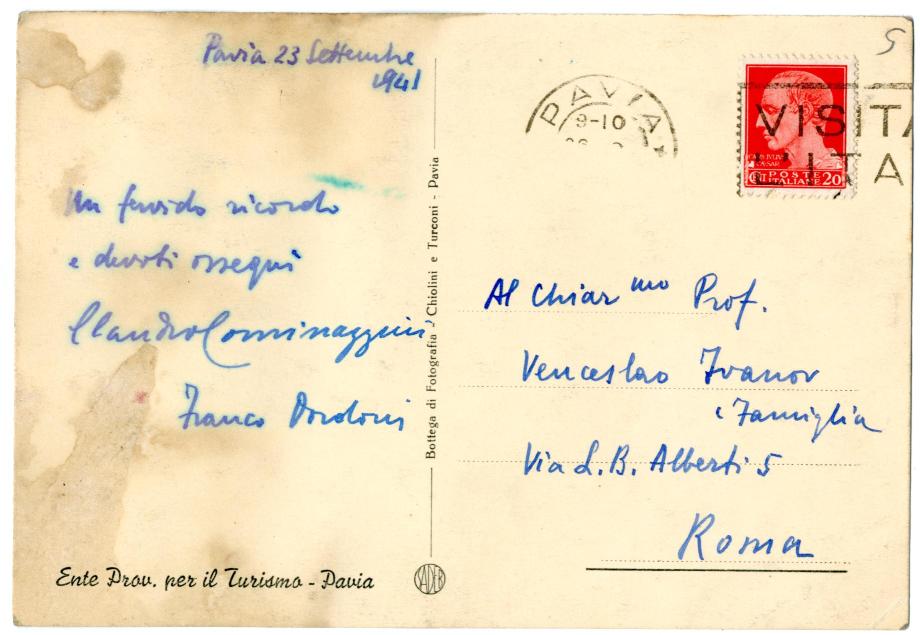 Pavia 23 Settembre
1941
Un fervido ricordo
e devoti ossequi
Claudio Cominazzini
Franco
Ente Prov. per il Turismo - Pavia
Bottega di Fotografia - Chiolini e Turconi - Pavia
SADEB
5
PAVIA
9-10
VISITA
L'ITA
POSTE
ITALIANE 20
Al Chiar mo Prof.
Venceslao Ivanov
e Famiglia
Via L. B. Alberti 5
Roma